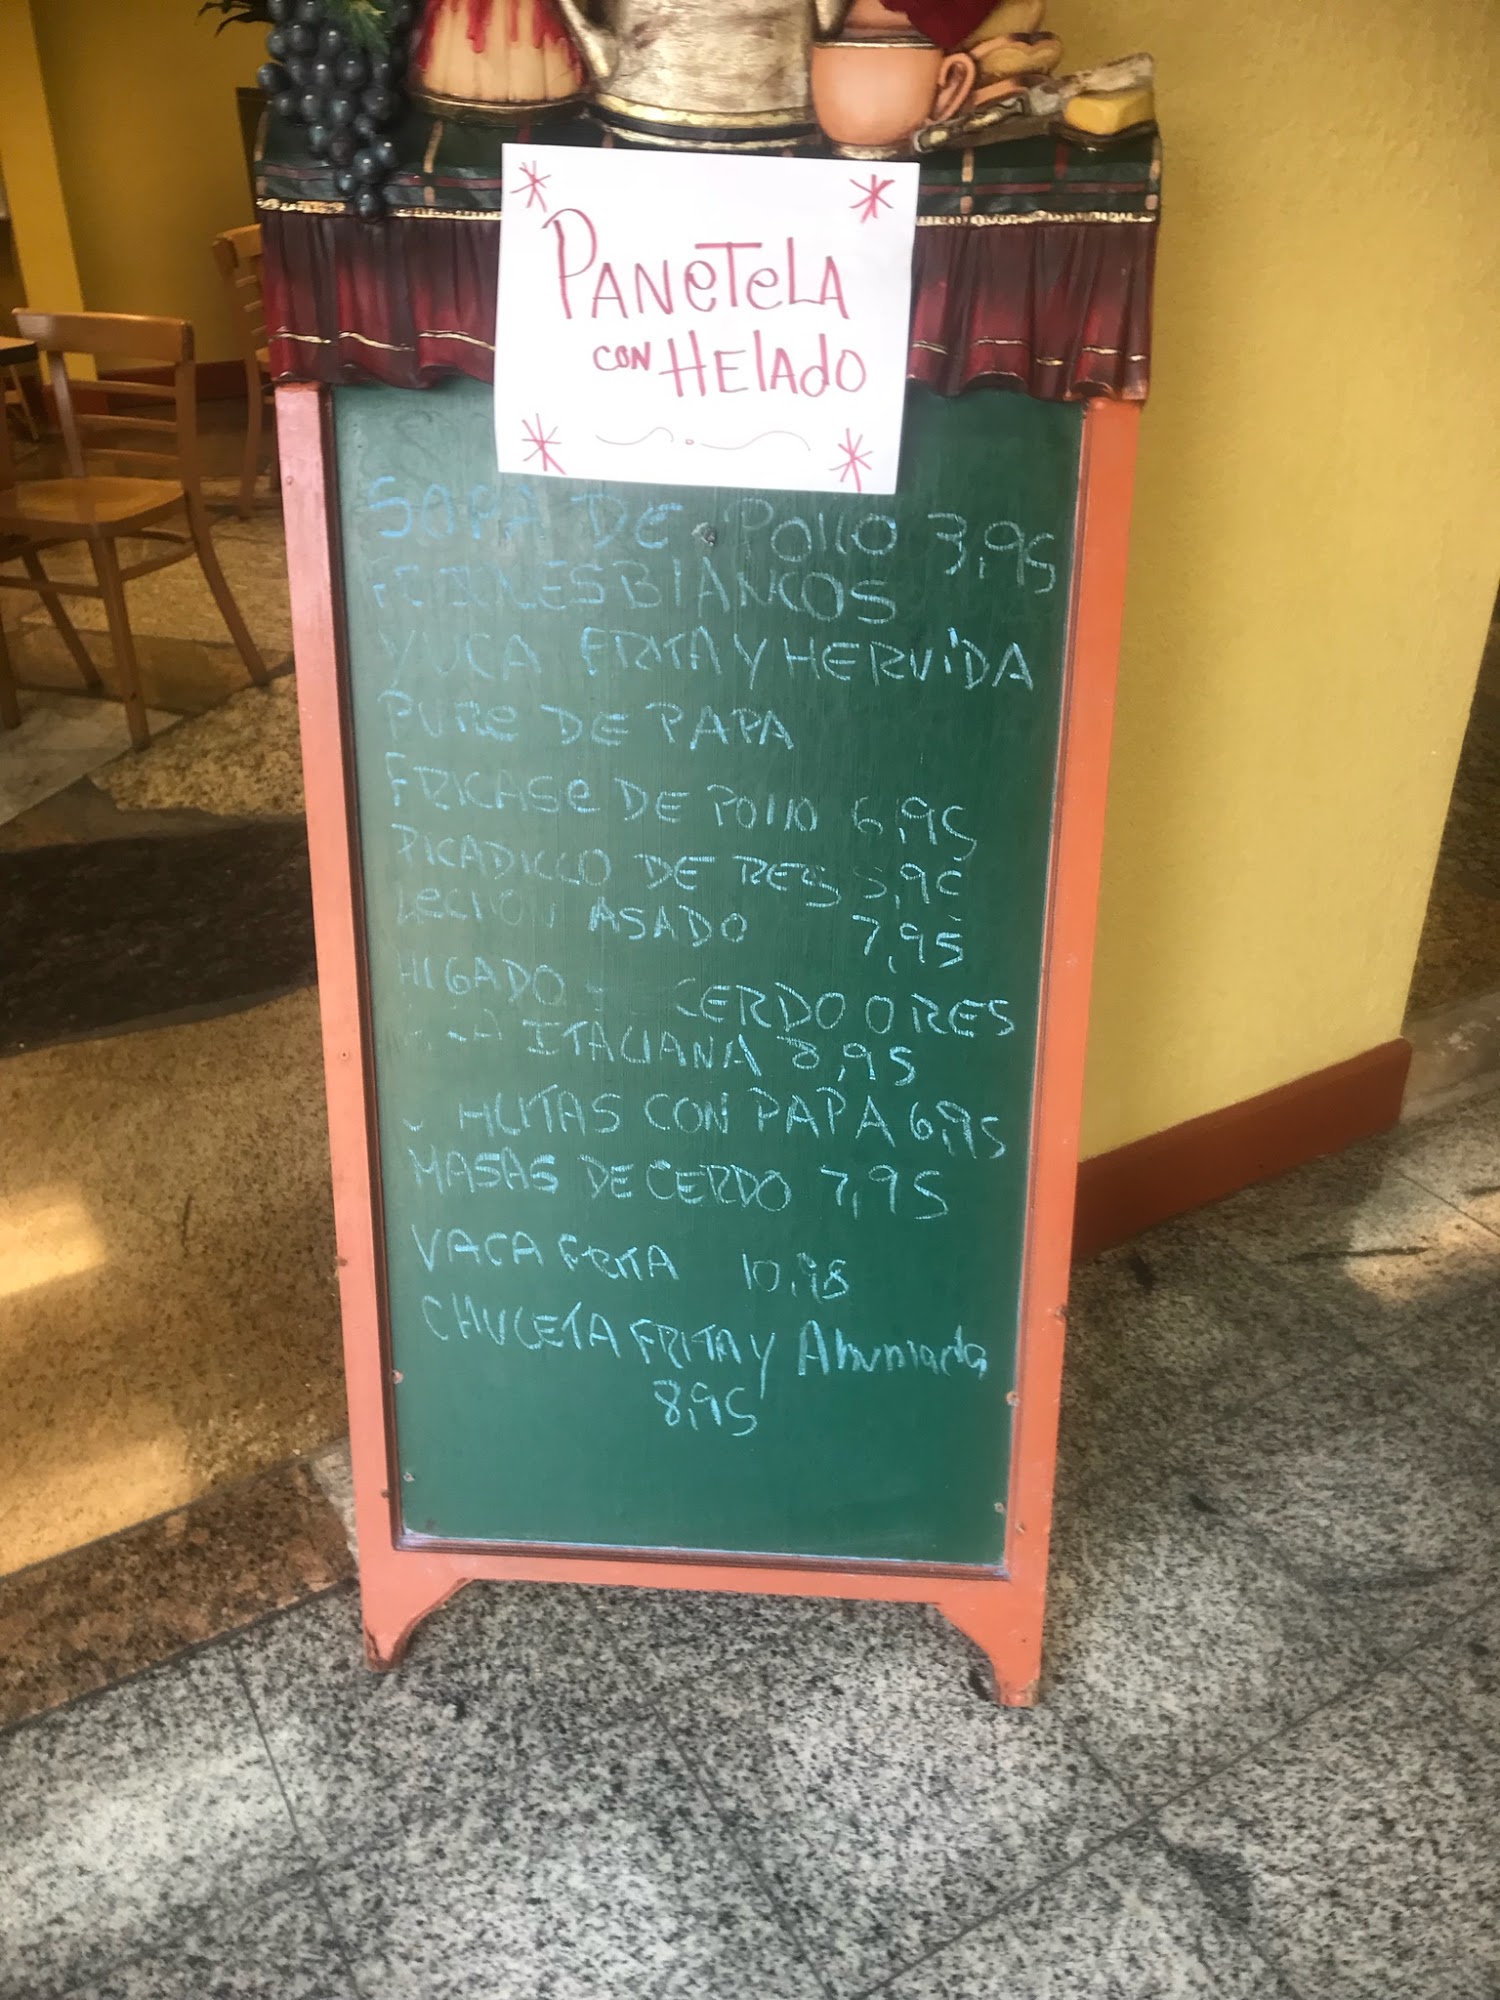 PANeTeLA
CON HElAdO
SOPA DE POllO 3,95
BlANCOS
YUCA FRITA Y HERViDA
PURe DE PAPA
FRICASe DE POllO 6,95
PICADILLO DE RES
LECHON ASADO 7,95
HIGADO CERDO O RES
ITALIANA 8,95
CON PAPA 6,95
MASAS DE CERDO 7,95
VACA FRITA 10,95
CHULETA FRITA Y Ahumada
8,95